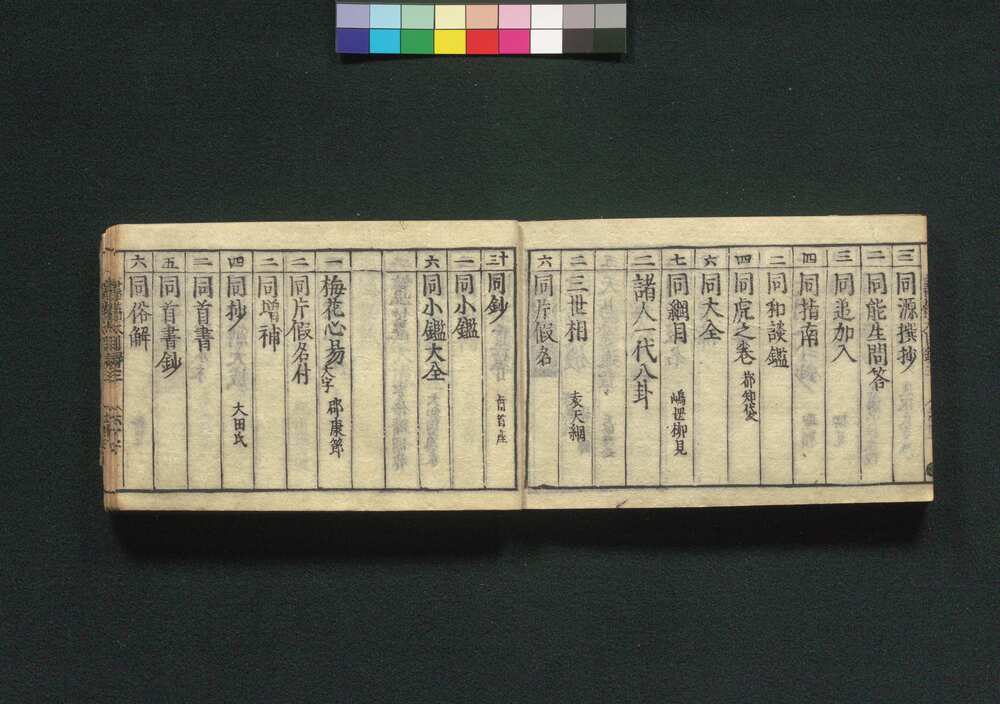 三 同源撰抄
二 同能生問答
三 同追加入
四 同指南
二 同和談鑑
四 同虎之巻
六 同大全
七 同綱目 嶋浥柳見
二 諸人一代八卦
二 三世相 袁天綱
六 同片假名
十三 同鈔
一 同小鑑
六 同小鑑大全
一 梅花心易 大字 邵康節
二 同片假名付
二 同増補
四 同抄 大田氏
二 同首書
五 同首書鈔
六 同俗解